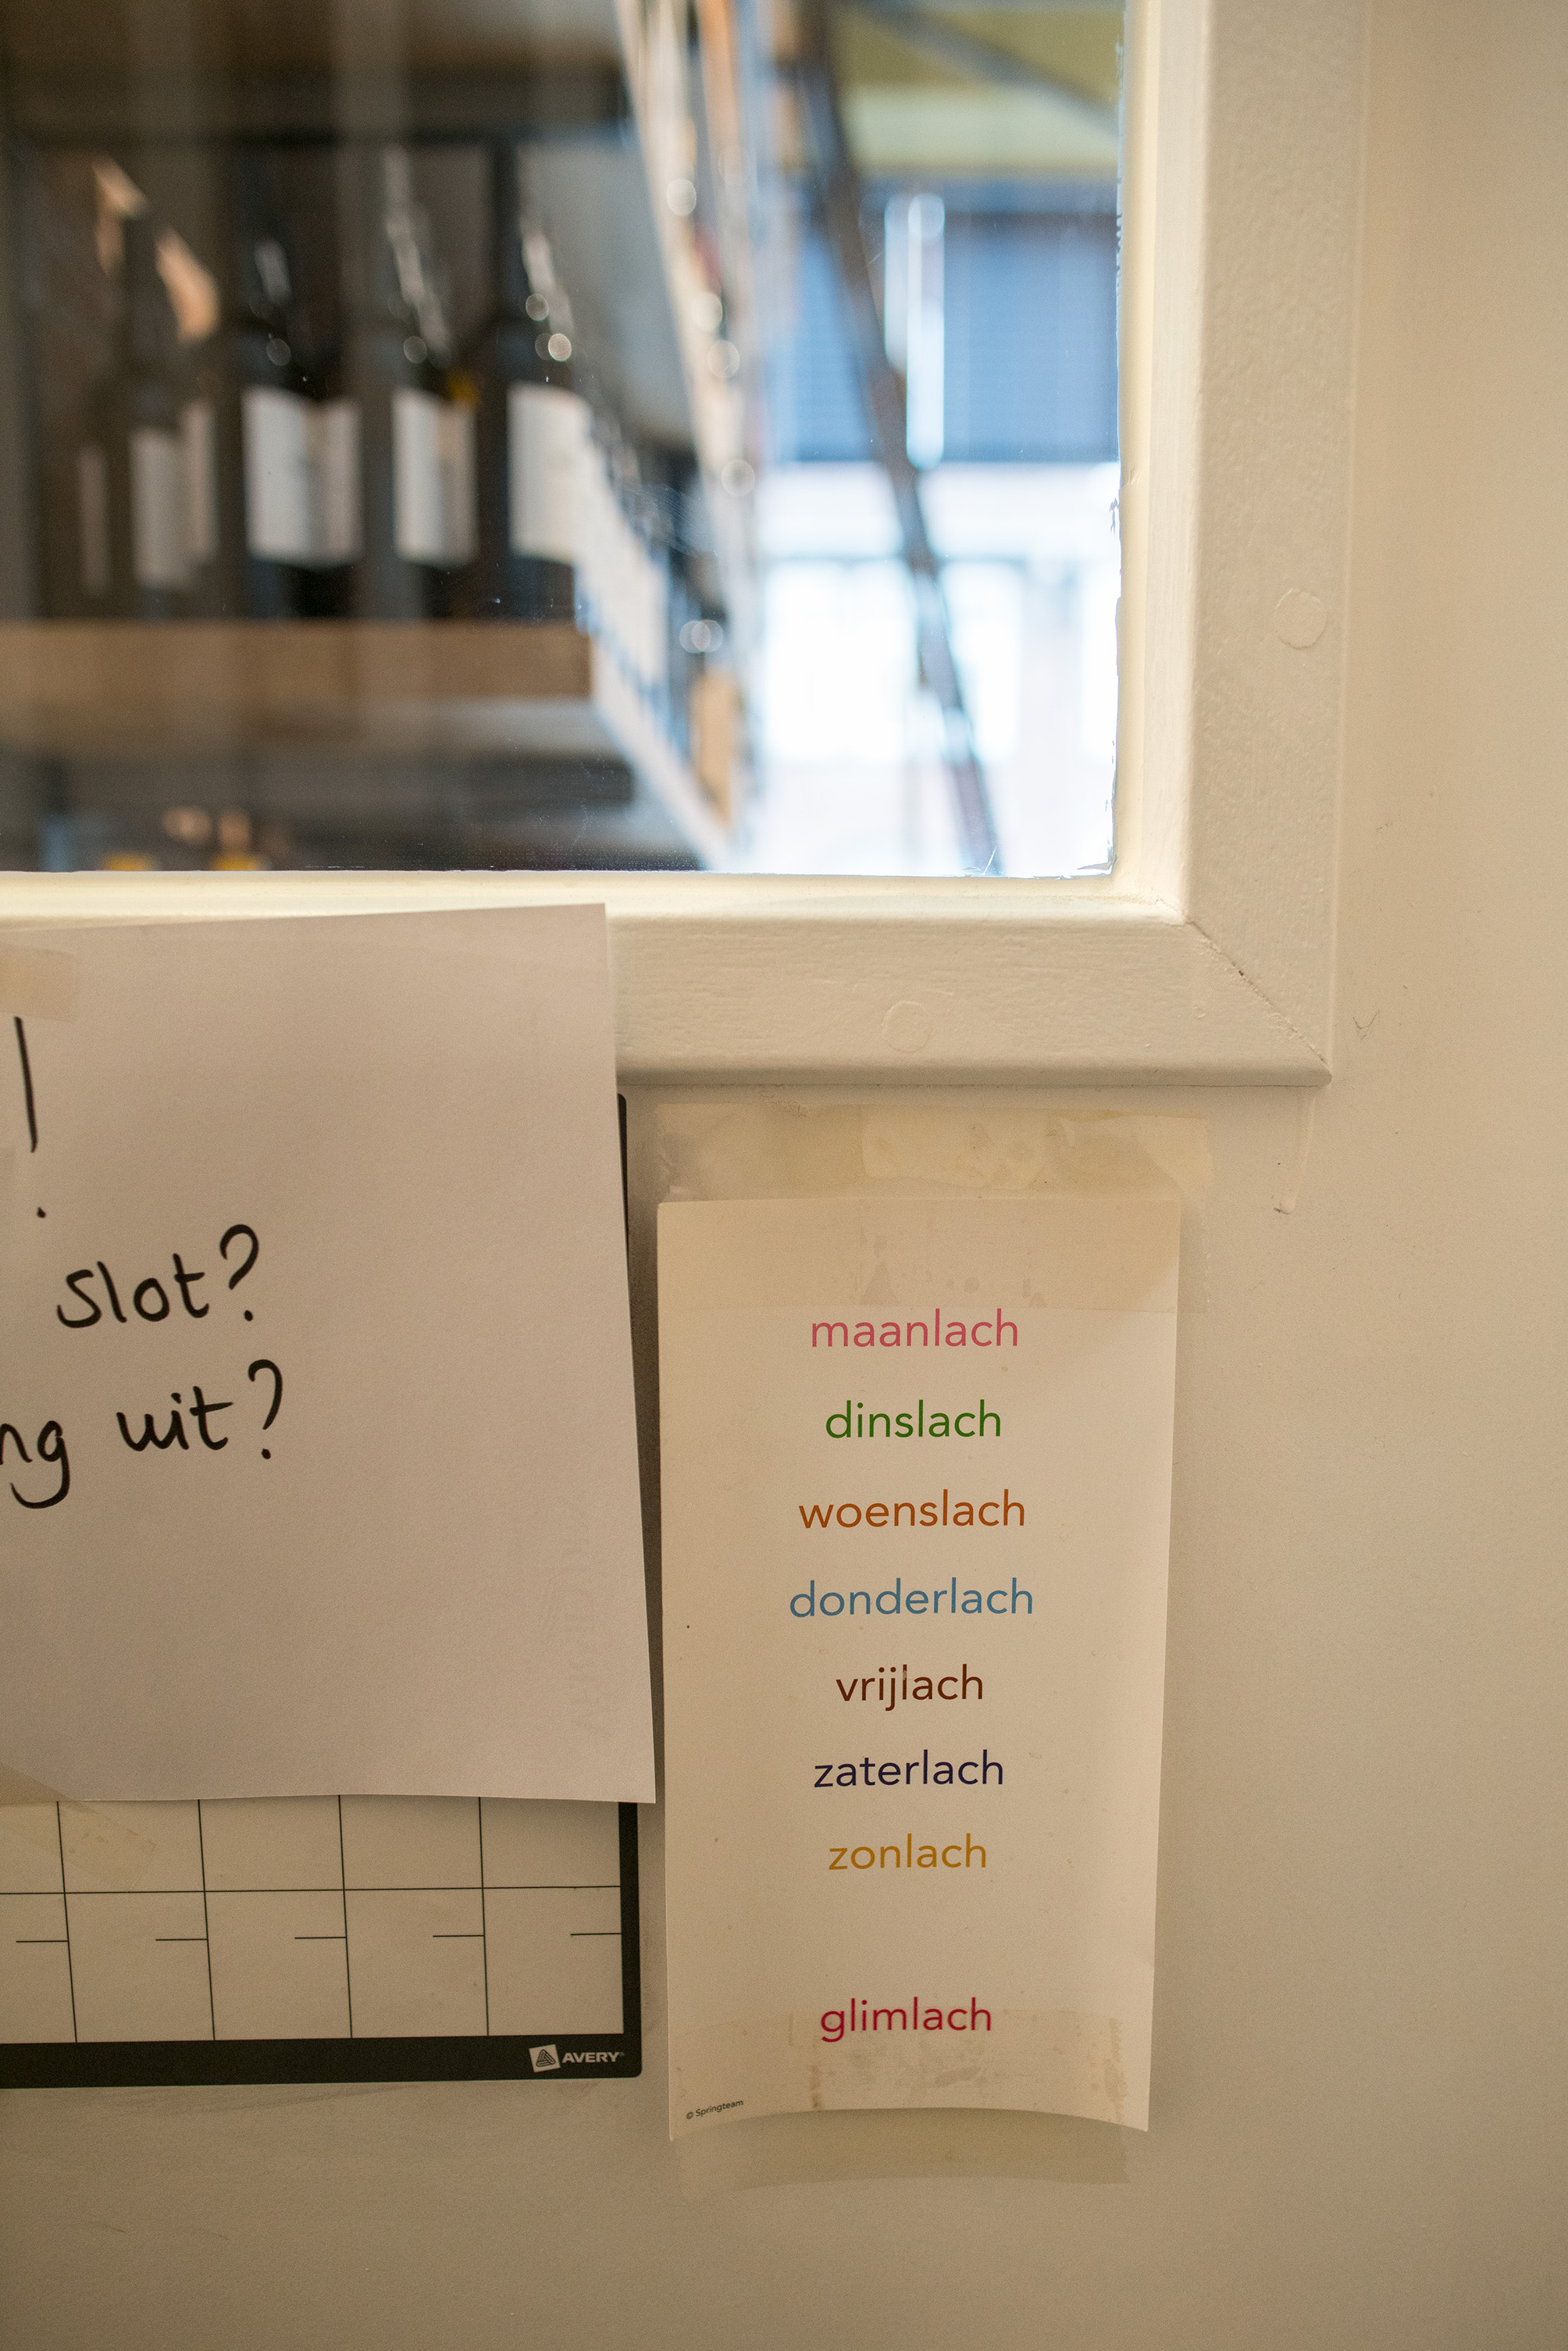 !
slot?
ng uit?
maanlach
dinslach
woenslach
donderlach
vrijlach
zaterlach
zonlach
glimlach
© Springteam
AVERY